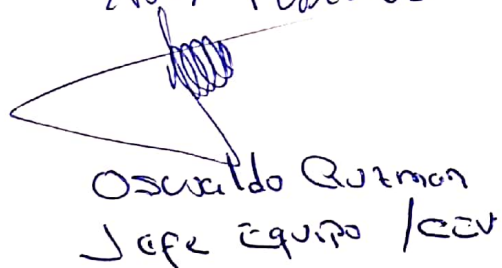 Oswaldo Guzman
Jefe Equipo / CEV